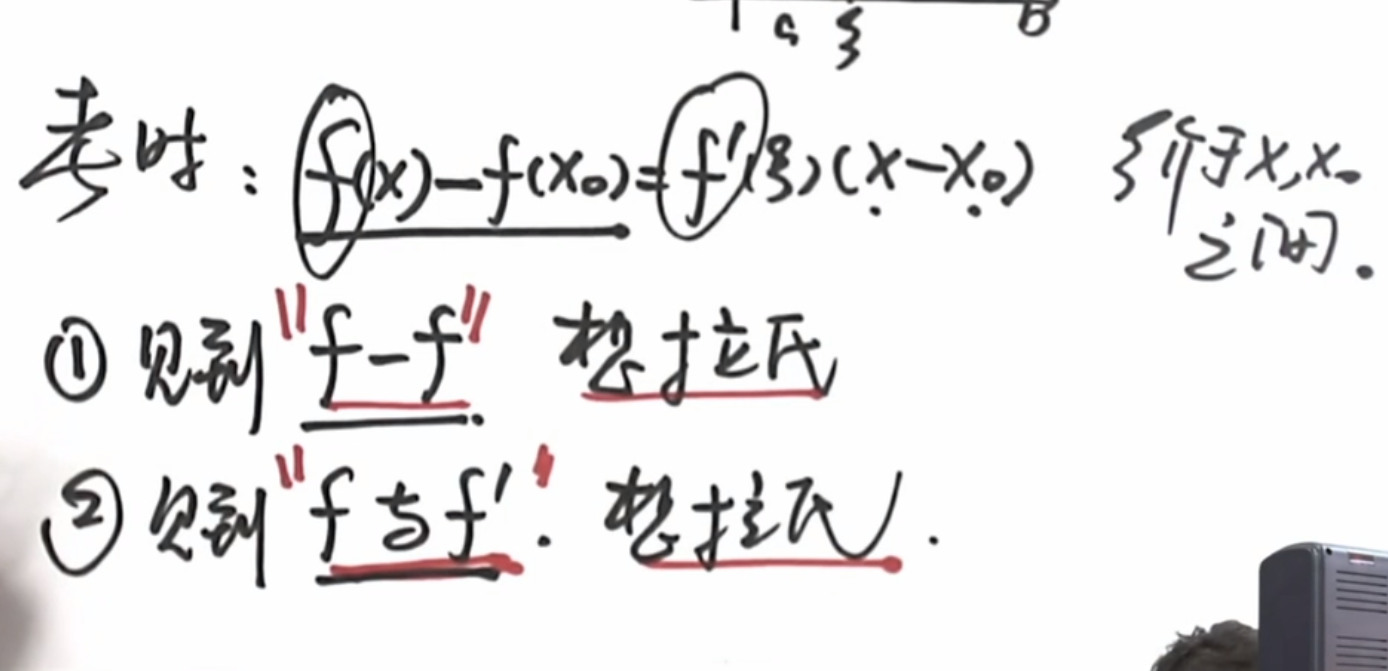 a ξ B
考时: f(x)-f(x₀)=f'(ξ)(x-x₀) ξ介于x,x₀
之间.
① 见到"f-f" 想拉氏
② 见到"f与f'". 想拉氏.